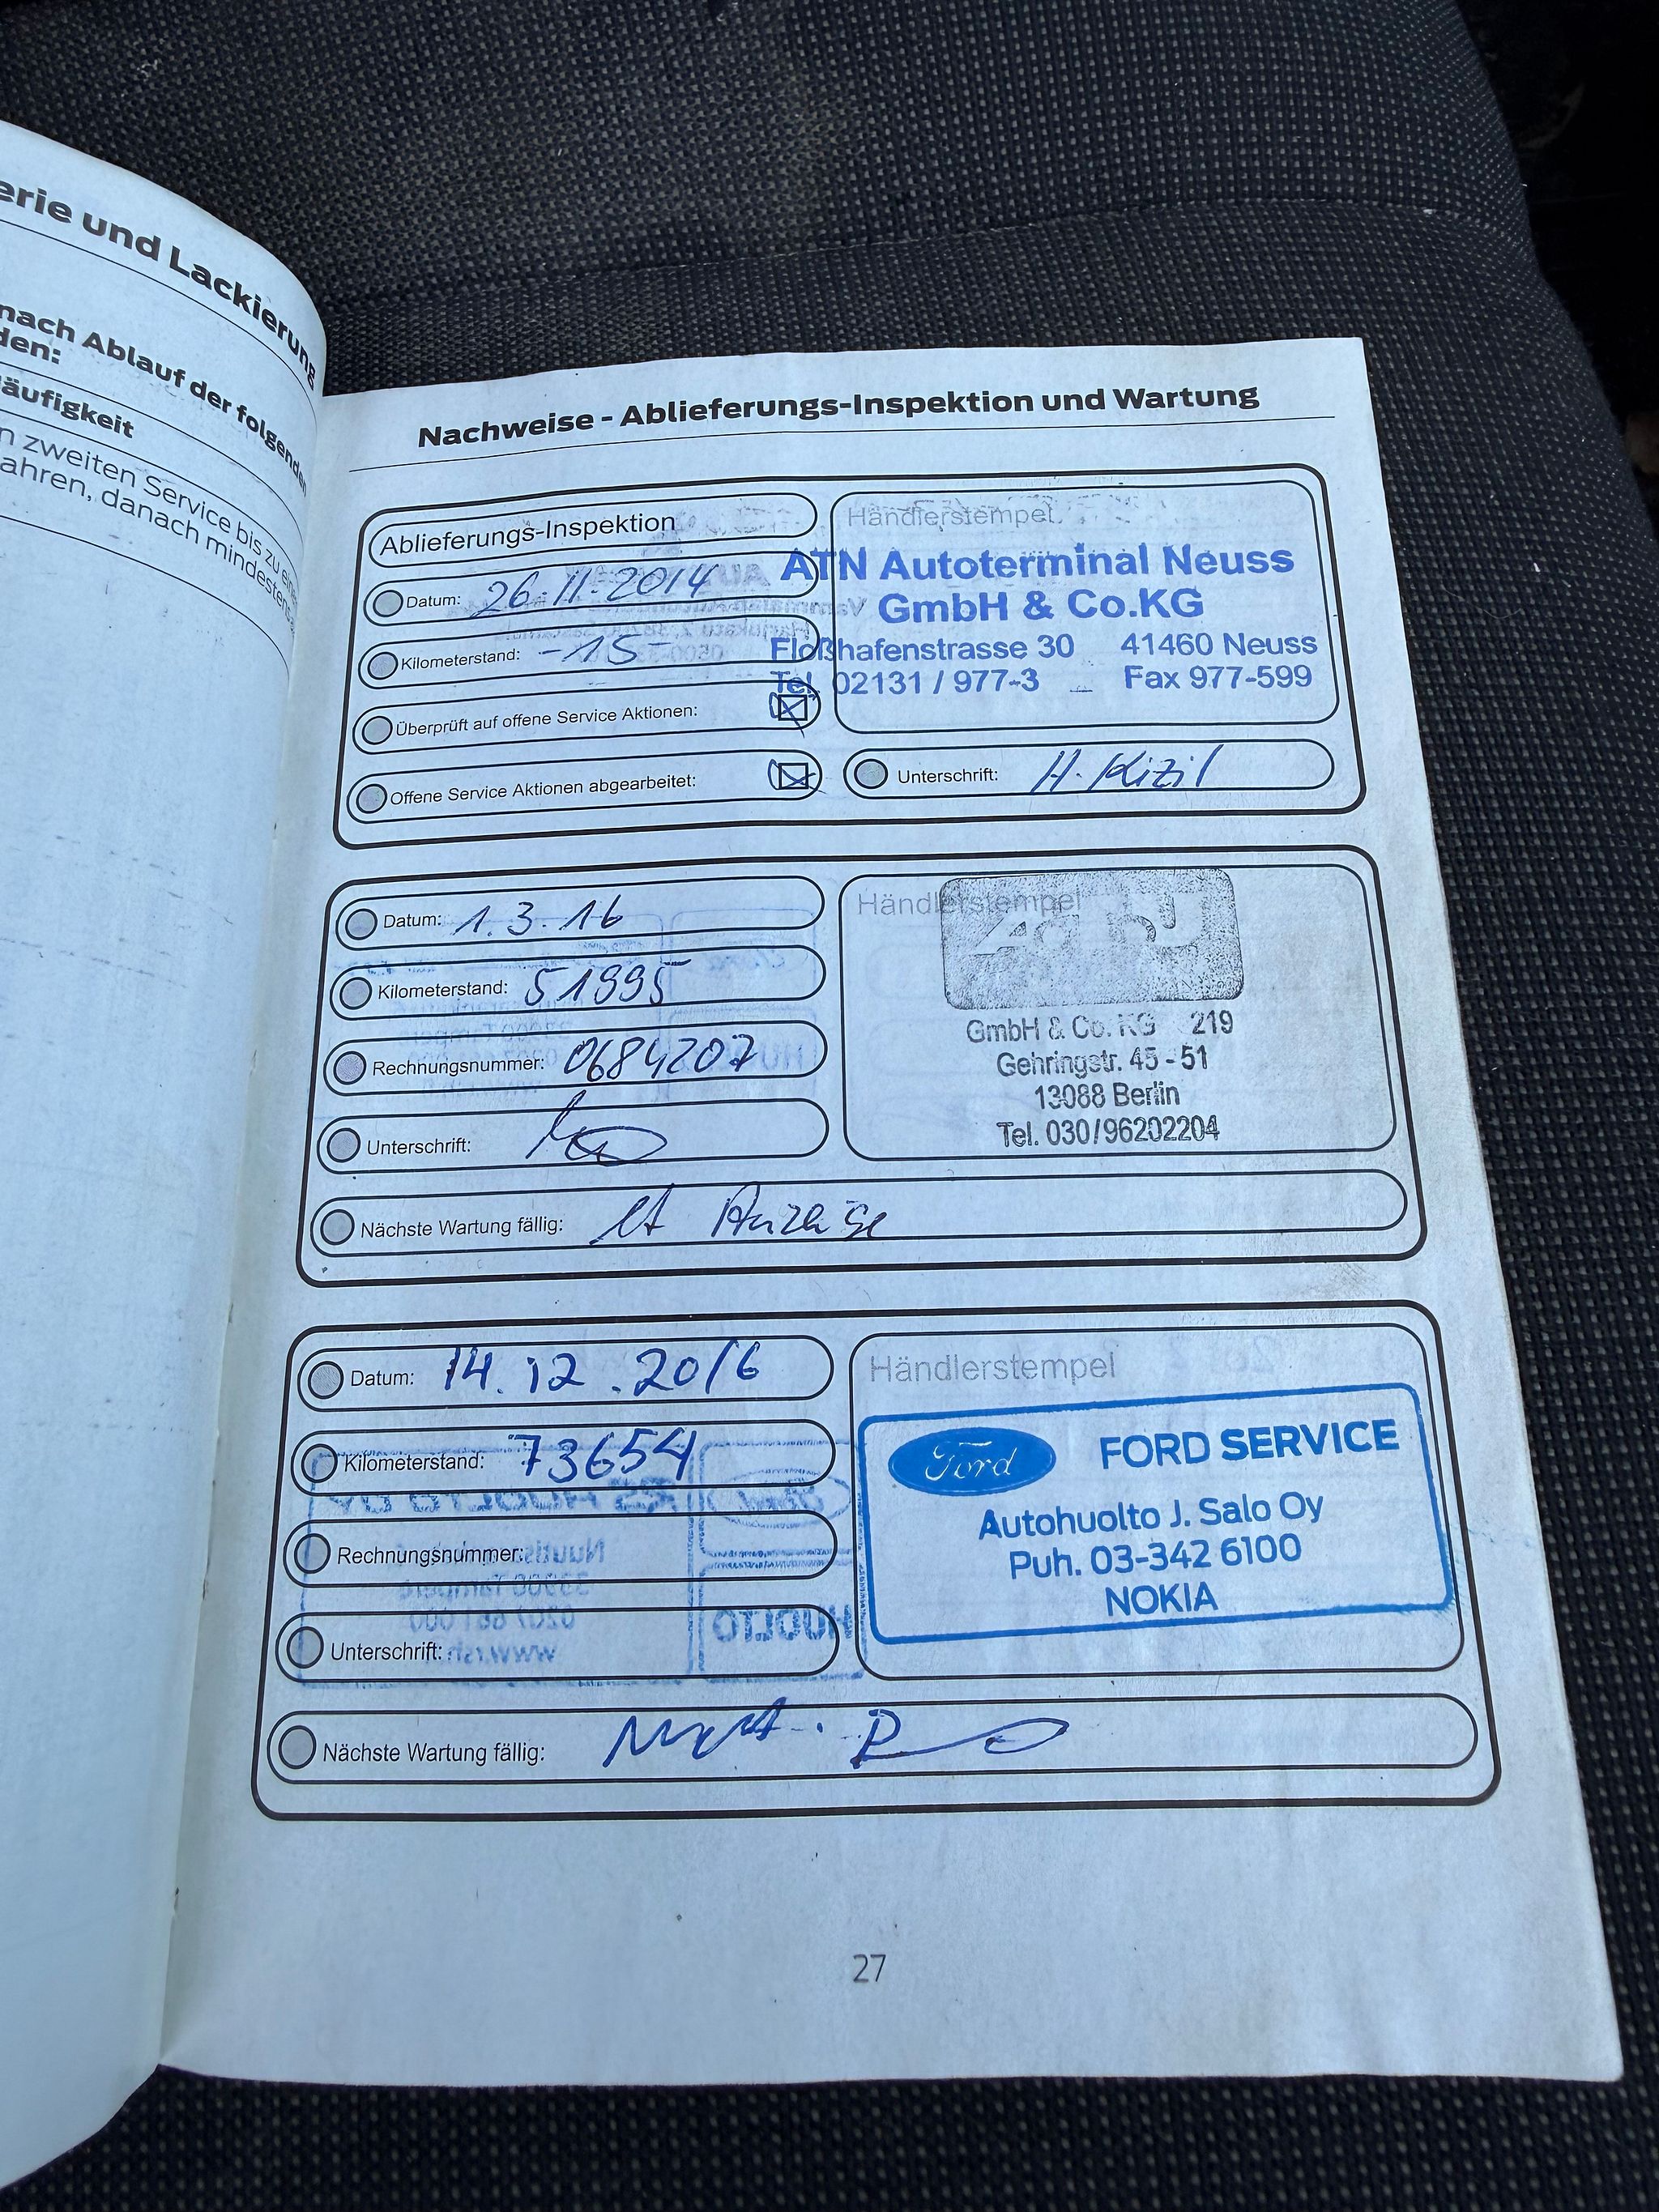 erie und Lackierung
nach Ablauf der folgenden
den:
äufigkeit
n zweiten Service bis zu
ahren, danach mindestens
Nachweise - Ablieferungs-Inspektion und Wartung
Ablieferungs-Inspektion
Datum: 26.11.2014
Kilometerstand: -15-
Überprüft auf offene Service Aktionen:
Offene Service Aktionen abgearbeitet:
Händlerstempel
ATN Autoterminal Neuss
GmbH & Co.KG
Floßhafenstrasse 30 41460 Neuss
Tel. 02131 / 977-3 Fax 977-599
Unterschrift: H. Kizil
Datum: 1.3.16
Kilometerstand: 51995
Rechnungsnummer: 0684207
Unterschrift:
Händlerstempel
GmbH & Co. KG 219
Gehringstr. 45 - 51
13088 Berlin
Tel. 030/96202204
Nächste Wartung fällig: lt Anzeige
Datum: 14.12.2016
Kilometerstand: 73654
Rechnungsnummer:
Unterschrift:
Händlerstempel
Ford FORD SERVICE
Autohuolto J. Salo Oy
Puh. 03-342 6100
NOKIA
Nächste Wartung fällig:
27